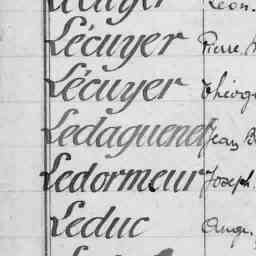 Lécuyer Léon
Lécuyer Pierre
Lécuyer Théog
Ledaguenel Jean B
Ledormeur Joseph
Leduc Ange